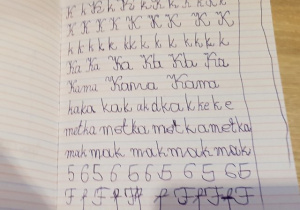 K K K K K K K K K K
K K K K K K K K
k k k k k k k k k k k
Ka Ka Ka Ka Ka Ka
Kama Kama Kama
kaka kak akdkakkeke
metka metka metkametka
mak mak makmakmak mak
5 6 5 6 5 6 5 6 5 6 5
F f F f F f f F f F f F